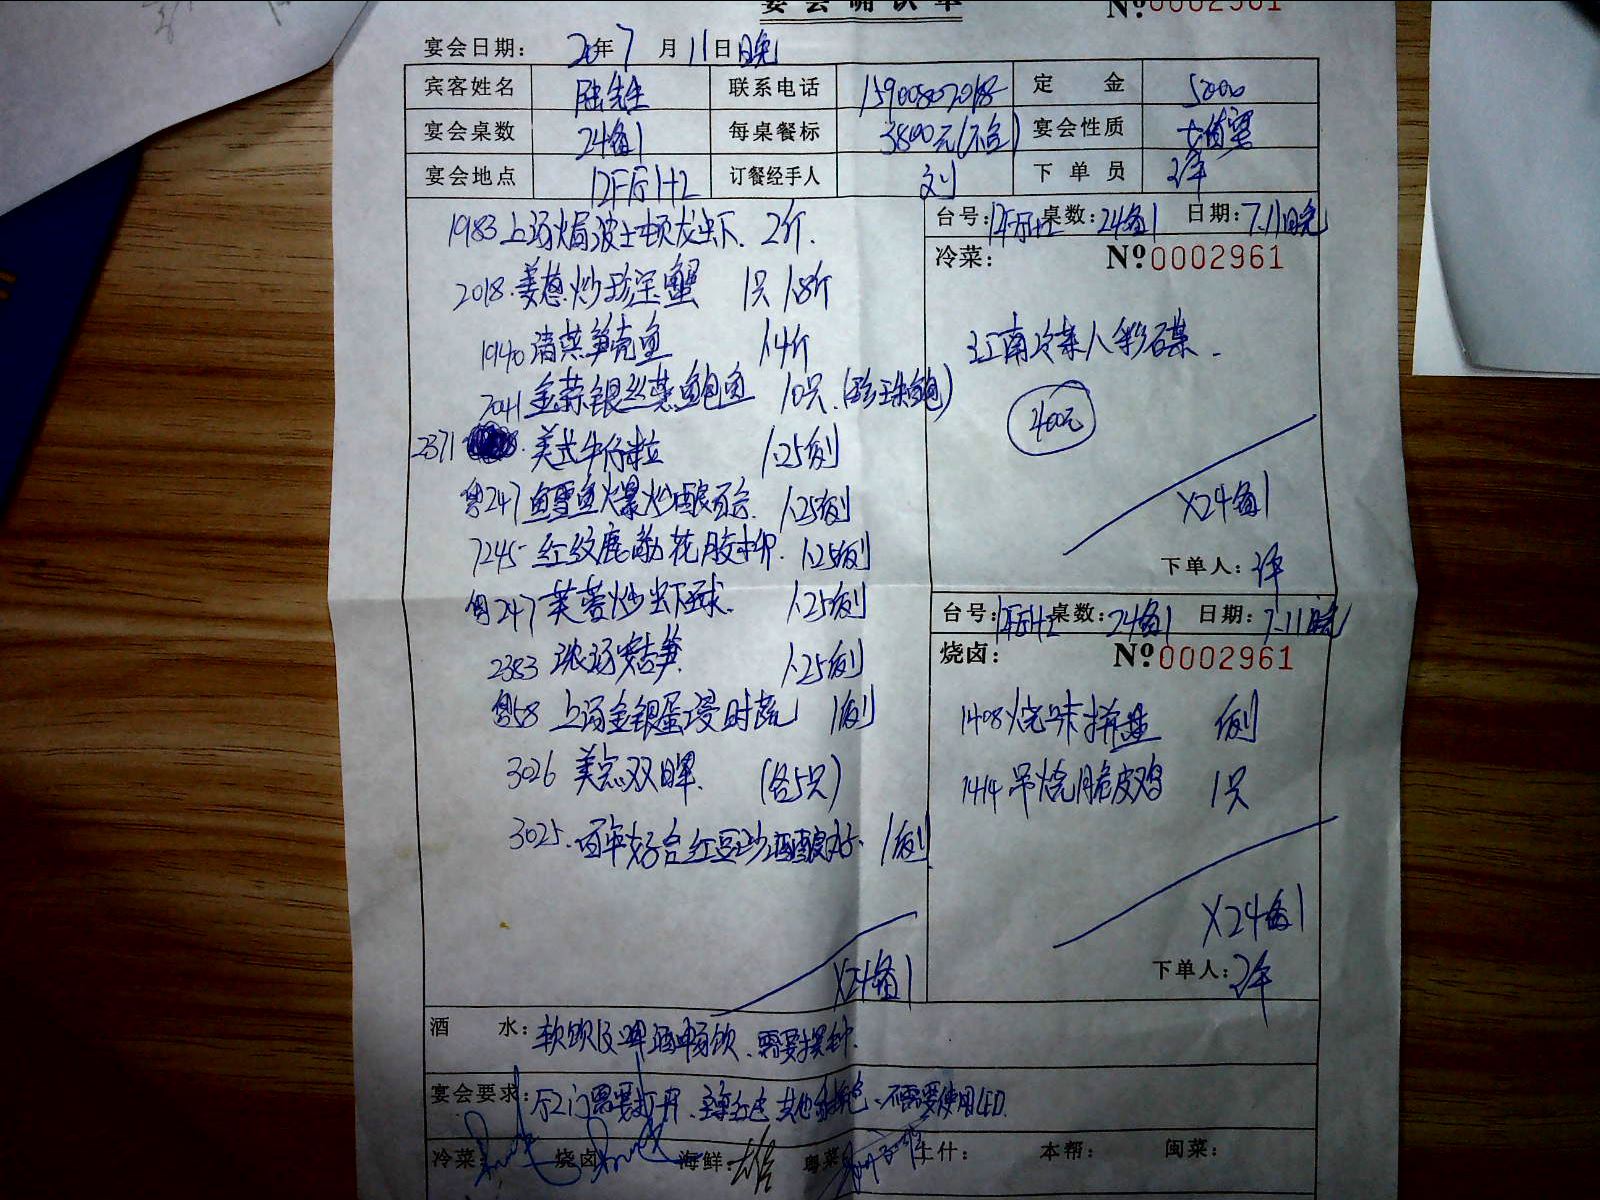 宴会确认单
№0002961
宴会日期: 20年7月11日晚
宾客姓名 陆先生 联系电话 定金 5000
宴会桌数 24备1 每桌餐标 3800元(不含) 宴会性质
宴会地点 12F厅1+2 订餐经手人 刘 下单员
1983 上汤焗波士顿龙虾. 2斤.
2018. 姜葱炒珍宝蟹 1只 1.8斤
1940 清蒸笋壳鱼 1.4斤
7041 金蒜银丝蒸鲍鱼 10只.(珍珠鲍)
2371 美式牛仔粒 1.25例
247 鳕鱼爆炒酸百合. 1.25例
7245 红纹鹿筋花胶柳. 1.25例
247 芙蓉炒虾球. 1.25例
2383 浓汤安吉笋. 1.25例
58 上汤金银蛋浸时蔬 1例
3026 美点双晖. (各5只)
3025. 百年好合红豆沙 1例
X24备1
台号: 12F厅1+2 桌数: 24备1 日期: 7.11晚
冷菜: №0002961
江南冷菜八彩碟.
400元
X24备1
下单人:
台号: 12F厅1+2 桌数: 24备1 日期: 7.11晚
烧卤: №0002961
1408 烧味拼盘 例
1414 吊烧脆皮鸡 1只
X24备1
下单人:
酒水: 软饮及啤酒畅饮.
宴会要求: 厅2门需要打开. 不需要使用LED.
冷菜 烧卤 海鲜: 粤菜 上什: 本帮: 闽菜: